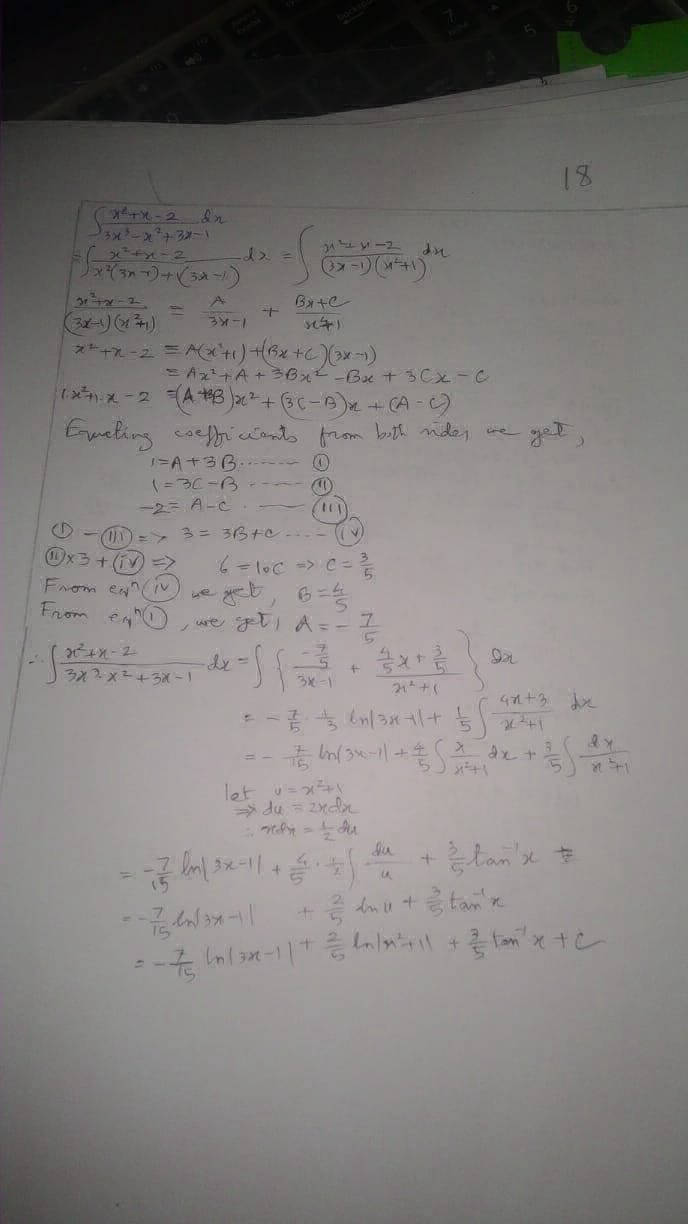 18
∫ (x²+x-2)/(3x³-x²+3x-1) dx
= ∫ (x²+x-2)/(x²(3x-1)+1(3x-1)) dx = ∫ (x²+x-2)/((3x-1)(x²+1)) dx
(x²+x-2)/((3x-1)(x²+1)) ≡ A/(3x-1) + (Bx+C)/(x²+1)
x²+x-2 ≡ A(x²+1)+(Bx+C)(3x-1)
= Ax²+A+3Bx²-Bx+3Cx-C
1.x²+1.x-2 = (A+3B)x²+(3C-B)x+(A-C)
Equating coefficiants from both sides we get,
1=A+3B ------- (i)
1=3C-B ------ (ii)
-2= A-C . ------ (iii)
(i) - (iii) => 3= 3B+C ---- (iv)
(ii)×3+(iv) => 6=10C => C=3/5
From eqⁿ (iv) we get, B=4/5
From eqⁿ (i), we get, A=-7/5
∴ ∫ (x²+x-2)/(3x³-x²+3x-1) dx = ∫ { (-7/5)/(3x-1) + (4/5 x+3/5)/(x²+1) } dx
= -7/5 . 1/3 ln|3x-1| + 1/5 ∫ (4x+3)/(x²+1) dx
= -7/15 ln|3x-1| + 4/5 ∫ x/(x²+1) dx + 3/5 ∫ dx/(x²+1)
let u=x²+1
=> du = 2xdx
∴ xdx = 1/2 du
= -7/15 ln|3x-1| + 4/5 . 1/2 ∫ du/u + 3/5 tan⁻¹x
= -7/15 ln|3x-1| + 2/5 ln u + 3/5 tan⁻¹x
= -7/15 ln|3x-1| + 2/5 ln|x²+1| + 3/5 tan⁻¹x + C